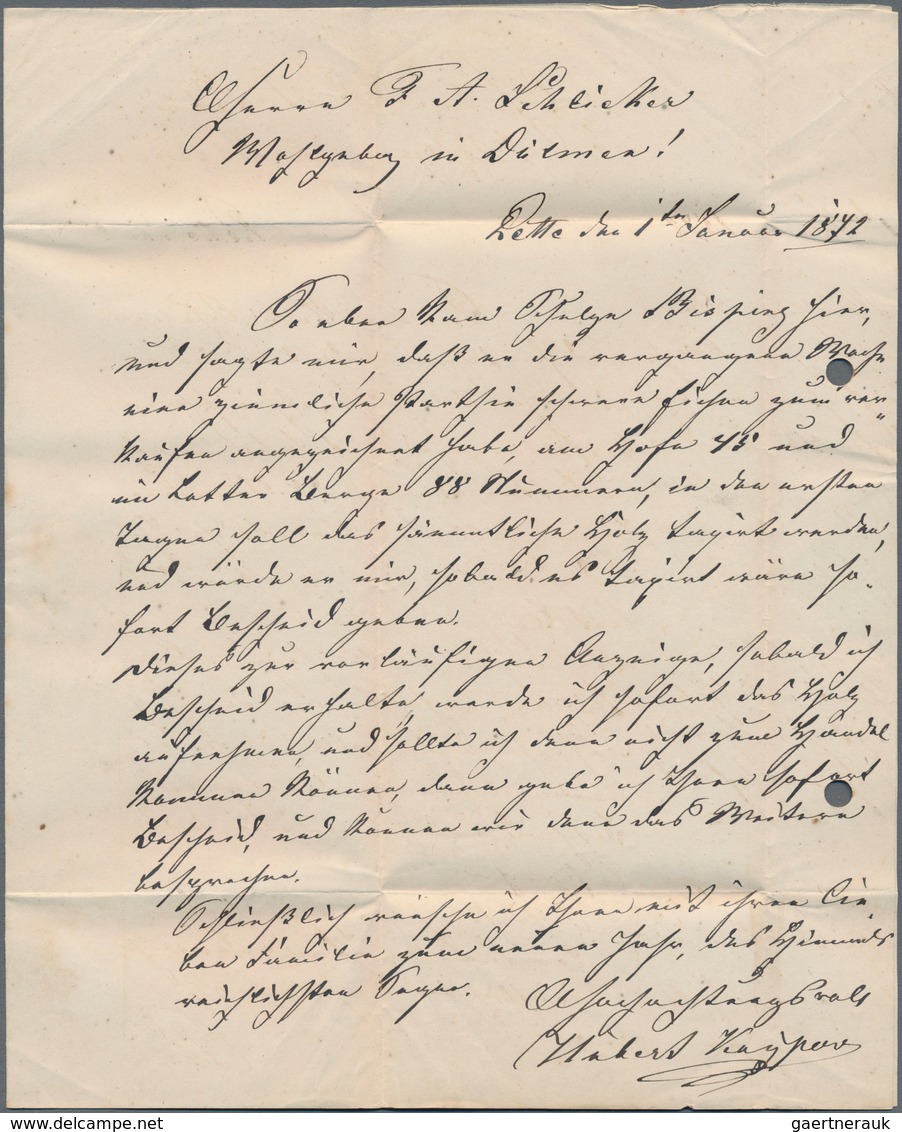 Herrn F A. Schlicker
Wohlgeborn in Dülmen!
Lette den 1ten Januar 1872
So eben kam Schulze Bisping hier,
und sagte mir, daß er die vergangene Woche
eine ziemliche Parthie schwere Eichen zum ver„
kaufen angezeichnet habe, am Hofe 45 und
im Letter Berge 88 Nummern, in den ersten
Tagen soll das sämmtliche Holz taxirt werden,
und würde er mir, sobald es taxirt wäre so„
fort Bescheid geben.
Dieses zur vorläufigen Anzeige, sobald ich
Bescheid erhalte, werde ich sofort das Holz
aufnehmen, und sollte ich denn nicht zum Handel
kommen können, dann gebe ich Ihnen sofort
Bescheid, und können wir dann das Weitere
besprechen.
Schließlich wünsche ich Ihnen mit ihren lie„
ben Familie zum neuen Jahr, des Himmels
reichlichsten Segen.
Hochachtungsvoll
Hubert
delcampe.net
gaertnerauk